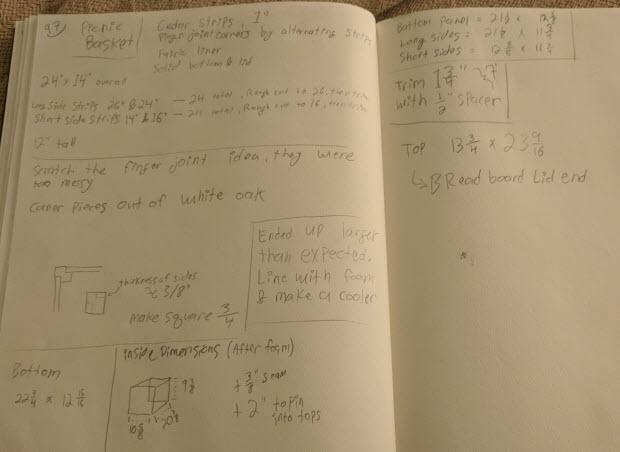 97 Picnic Basket
Cedar strips, 1"
Finger joint corners by alternating strips
Fabric liner
Solid bottom & lid
24" x 14" overall
Long side strips 26" & 24" — 24 total, Rough cut to 26, then trim
Short side strips 14" & 16" — total, Rough cut to 16, then trim
12" tall
Scratch the finger joint idea, they were
too messy
Corner pieces out of white oak
thickness of sides
≈ 3/8"
make square 3/4
Ended up larger
than expected.
Line with foam
& make a cooler
Bottom
22 3/4 x 12 15/16
Inside Dimensions (After foam)
+ 3/8" seam
+ 2" to pin
into tops
Bottom Panel = 21 x 12
Long sides = 21 x 11
Short sides = 12 x 11
Trim 1 3/4"
with 1/2" spacer
TOP 13 3/4 x 23 9/16
↳ BReadboard Lid end